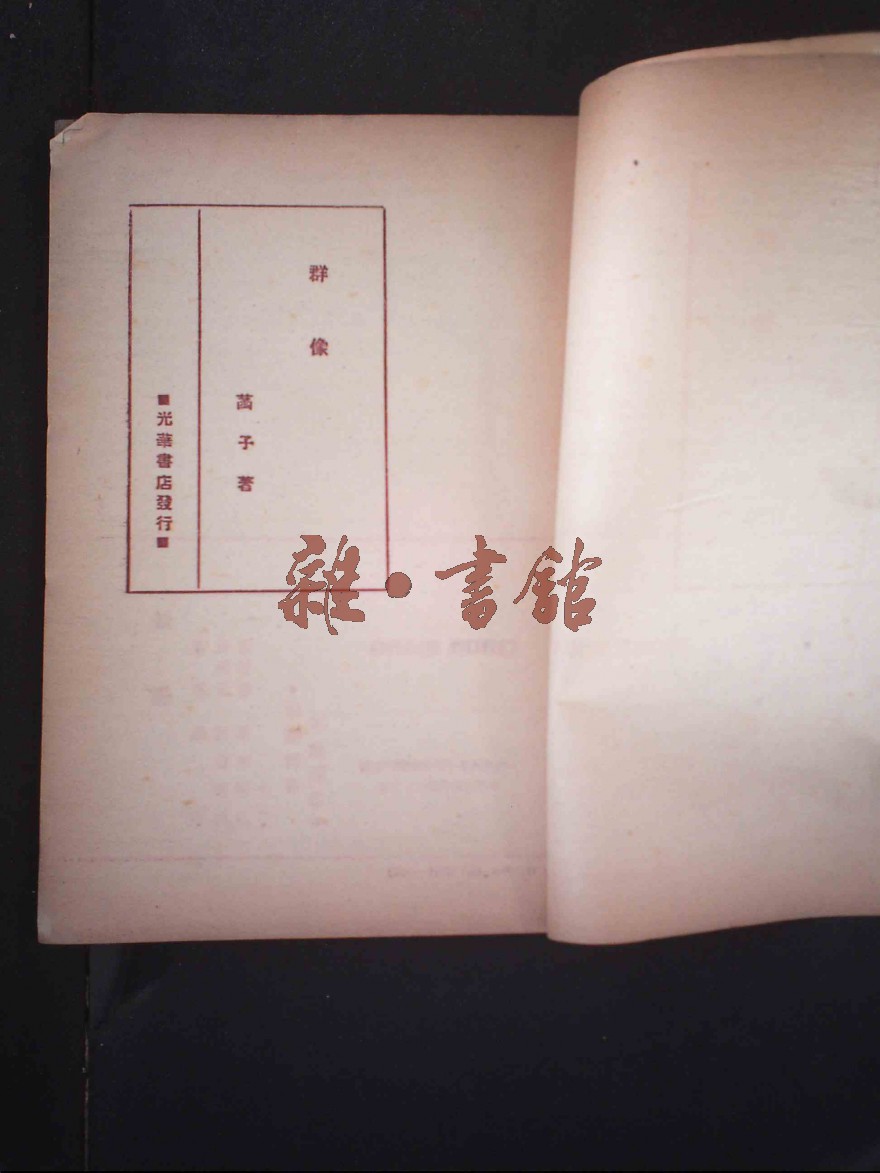 群像
萵子著
■光華書店發行■
雜•書館